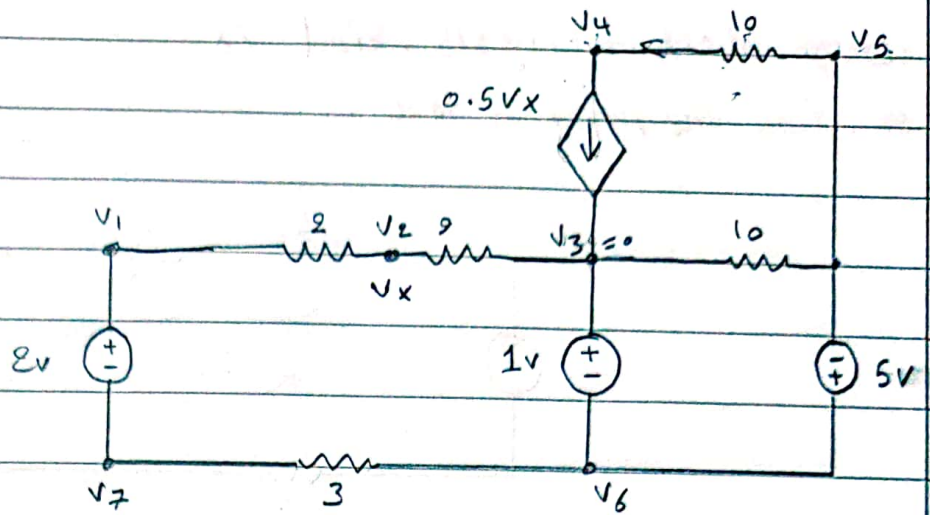 V4 10 V5
0.5Vx
V1 2 V2 9 V3 = 0 10
Vx
2v + - 1v + - - + 5v
V7 3 V6